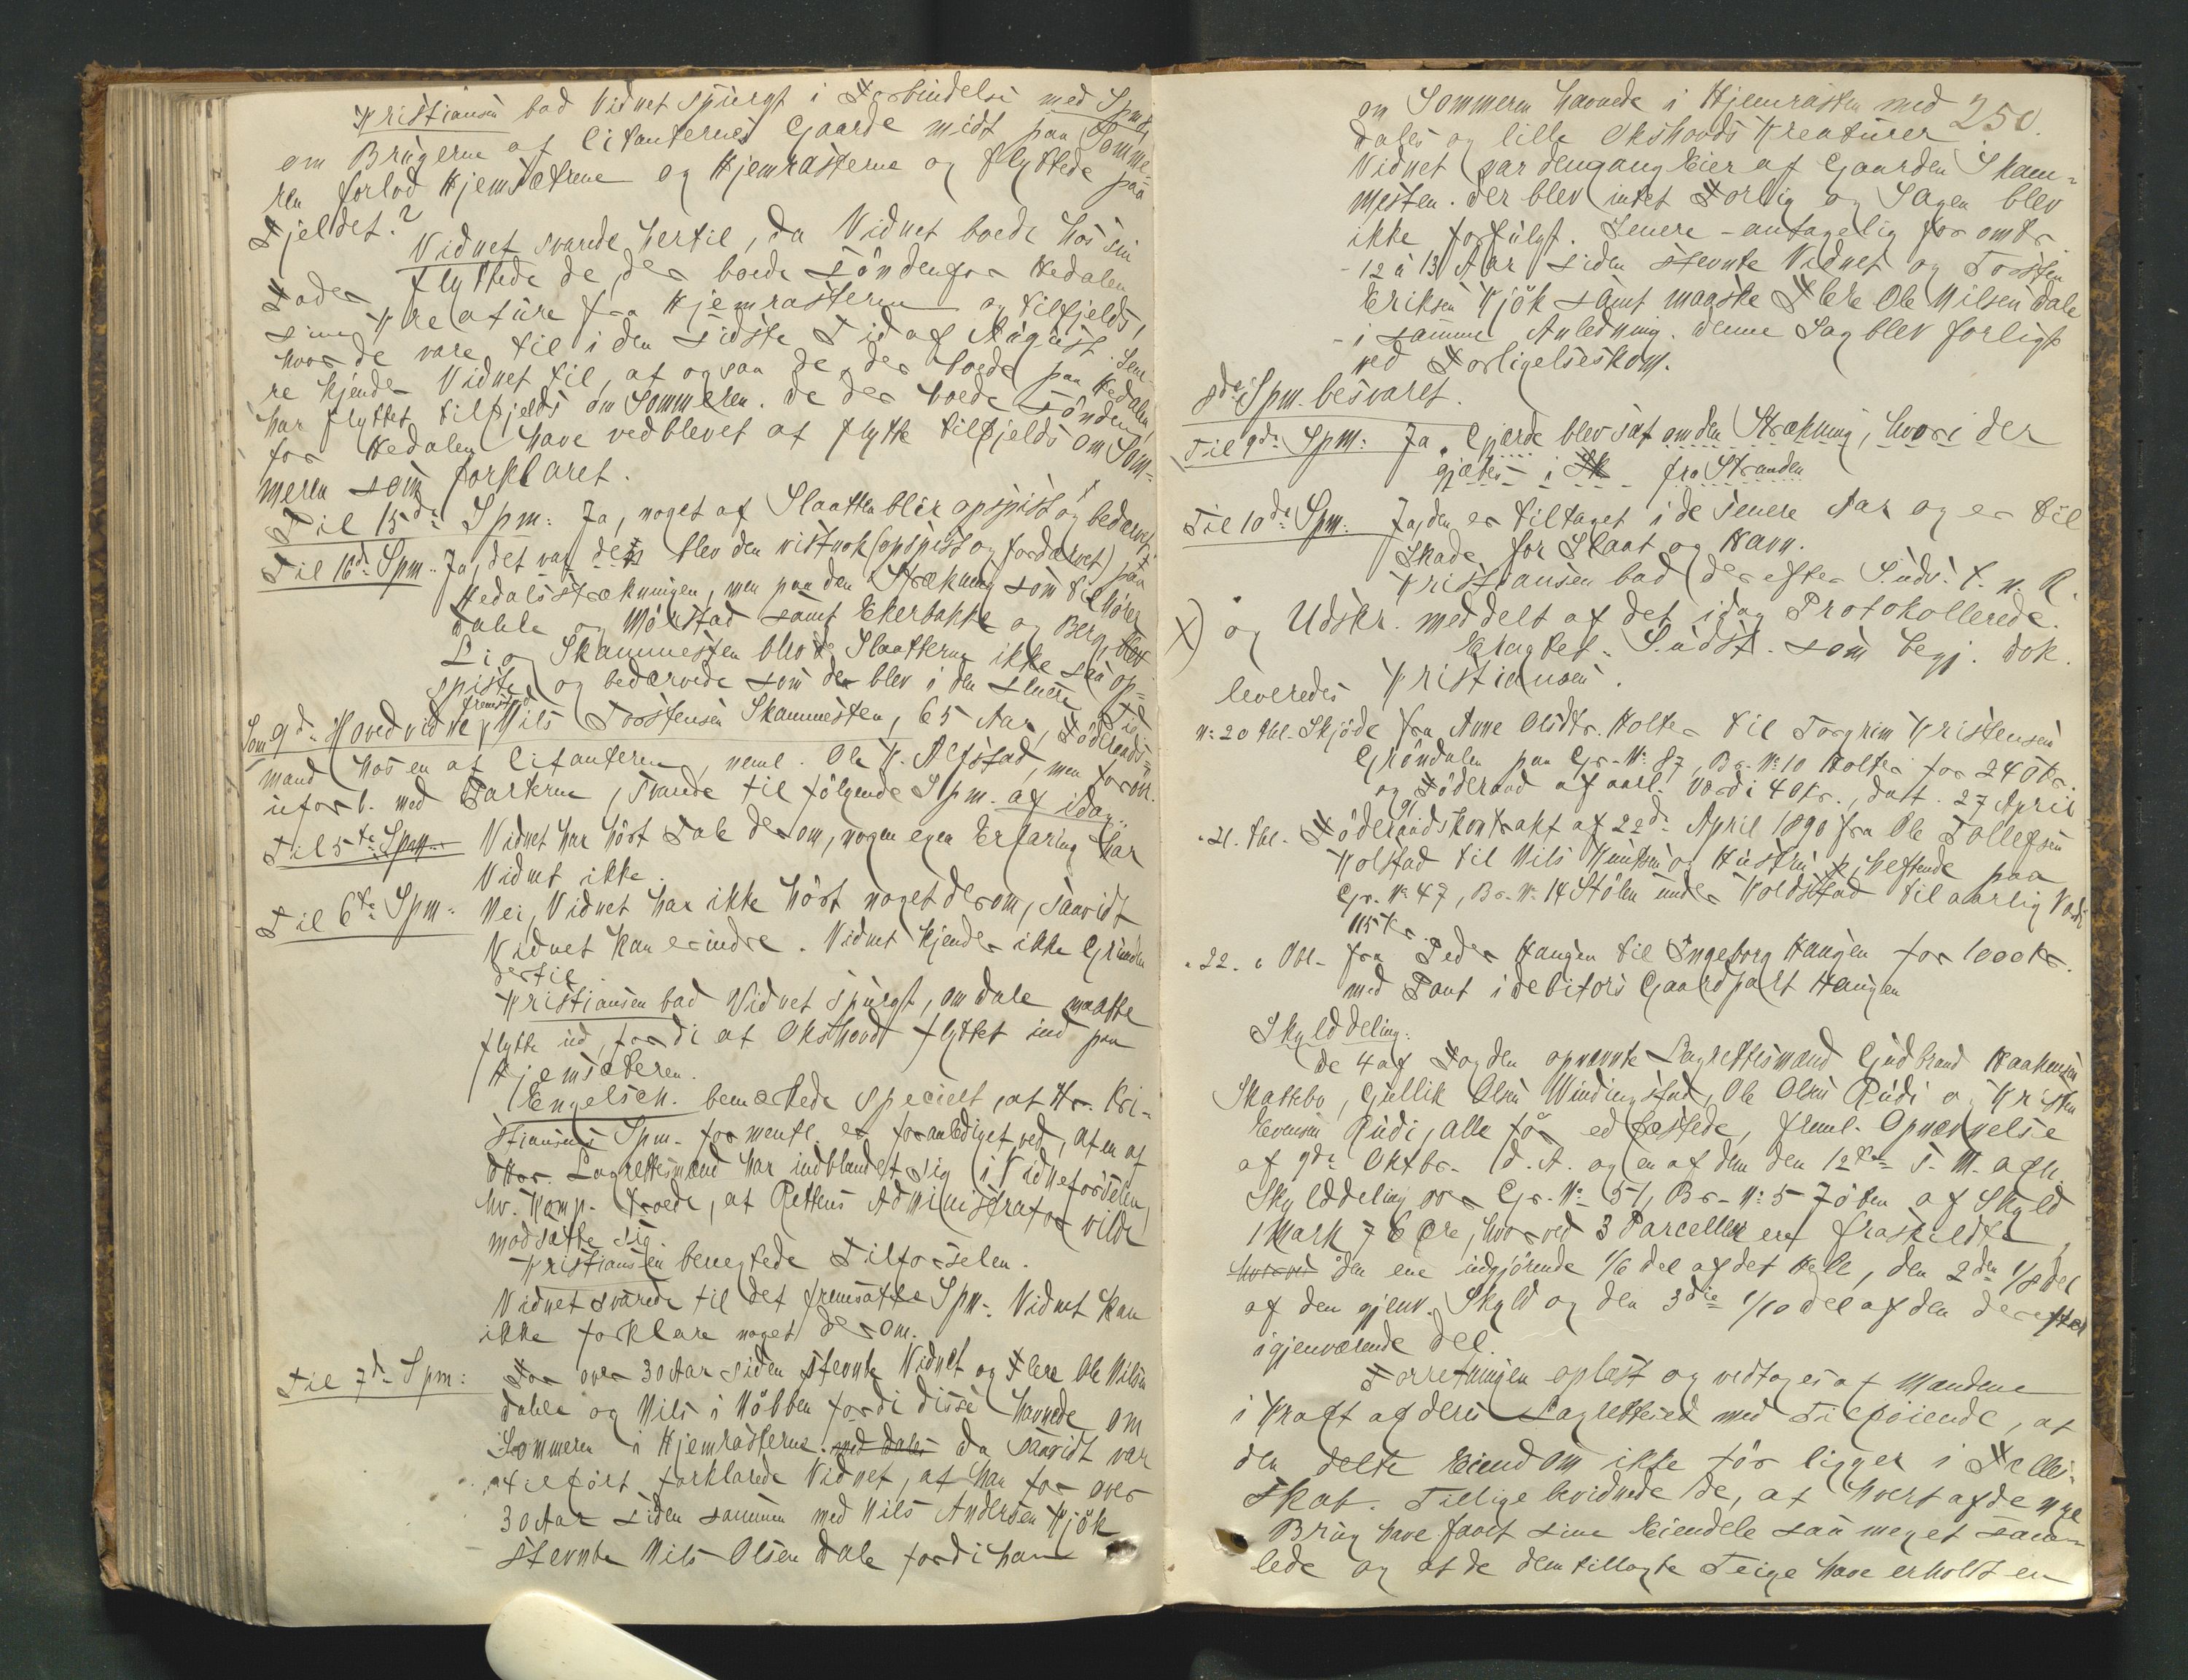 Kristiansen bad Vidnet spurgt i Forbindelse med Spm.
om Brugerne af Citanternes Gaarde midt paa Somme-
ren forlod Hjemsætrene og Hjemrasterne og flyttede paa
Fjeldet?
Vidnet svarede hertil, da Vidnet boede hos sin
Fader flyttede de, der boede søndenfor Hedalen
sine Kreature fra Hjemrasterne og tilfjelds,
hvor de vare til i den sidste Tid af August. Sene-
re kjender Vidnet til, at ogsaa de, der boede paa Hedalen
har flyttet tilfjelds om Sommeren. De der boede sønden-
for Hedalen have vedblevet at flytte tilfjelds om Som-
meren som forklaret.
Til 15de Spm: Ja, noget af Slaatten blev opspist og bedærvet.
Til 16de Spm.. Ja, det var blev den vistnok (opspist og fordærvet) paa
Hedalsstrækningen, men paa den Strækning som tilhører
Dahle og Mølstad samt Ekerbakke og Berg, blev
Li og Skammesten blev Slaatterne ikke saa op-
spiste og bedærvede som de blev i den senere Tid
Som 9de Hovedvidne fremstod Nils Torstensen Skammesten, 65 Aar, Føderaads-
mand hos en af Citanterne, neml. Ole K. Alfstad, men forøvr.
uforb. med Parterne, svarede til følgende Spm. af idag..
Til 5te Spm. Vidnet har hørt Tale derom, nogen egen Erfaring har
Vidnet ikke.
Til 6te Spm: Nei, Vidnet har ikke hørt noget derom, saavidt
Vidnet kan erindre. Vidnet kjender ikke Grunden
dertil.
Kristiansen bad Vidnet spurgt, om Dale maatte
flytte ud, fordi at Okshovd flyttet ind paa
Hjemsæteren.
Engelsch. bemærkede specielt, at Hr. Kri-
stiansens Spm. formentl. er foranlediget ved, at en af
dHrr. Lagrettesmænd har indblandet sig i Vidneførselen,
hv. Komp. troede, at Rettens Administrator vilde
modsætte sig.
Kristiansen benegtede Tilførselen.
Vidnet svarede til det fremsatte Spm: Vidnet kan
ikke forklare noget derom.
Til 7de Spm: For over 30 Aar siden stevnte Vidnet og Flere Ole Nilsen
Dahle og Nils i Nøbben fordi disse havnede om
Sommeren i Hjemrasterne. med Dales da saavidt var
tilført forklarede Vidnet, at han for over
30 Aar siden sammen med Nils Andersen Kjøk
stevnte Nils Olsen Dale fordi han
250.
om Sommeren havnede i Hjemrasten med
Dales og lille Okshovds Kreaturer
Vidnet var dengang Eier af Gaarden Skam-
mesten. Der blev intet Forlig og Sagen blev
ikke forfulgt. Senere - antagelig for omtr.
- 12 à 13 Aar siden stevnte Vidnet og Torsten
Eriksen Kjøk samt maaske Flere Ole Nilsen Dale
- i samme Anledning. Denne Sag blev forligt
ved Forligelseskom.
8de Spm. besvaret.
Til 9de Spm: Ja. Gjærde blev sat om den Strækning, hvori der
gjætes i Sk fra Stranden
Til 10de Spm: Ja, den er tiltaget i de senere Aar og er til
Skade for Slaat og Havn.
Kristiansen bad derefter S. uds. t. n. R.
X) og Udskr. meddelt af det idag Protokollerede.
Eragtet. S. udst. som begj. Dok.
leveredes Kristiansen.
No 20 thl. Skjøde fra Anne Olsdtr. Holter til Torgrim Kristensen
Grøndalen paa Gr. No 87, Br. No 10 Holter for 240 Kr.
og Føderaad af aarl. Værdi 40 Kr., dat. 27 April 91
" 21. thl. Føderaadskontrakt af 22de April 1890 fra Ole Tollefsen
Kolstad til Nils Knutsen og Hustru, heftende paa
Gr. No 47, Br. No 14 Stølen under Koldstad til aarlig Værdi
115 Kr.
" 22. " Obl. fra Peder Haugen til Ingeborg Haugen for 1000 Kr.
med Pant i Debitors Gaardpart Haugen
Skylddeling:
De 4 af Fogden opnævnte Lagrettesmænd Gudbrand Haakensen
Skattebo, Gullik Olsen Windingstad, Ole Olsen Rudi og Kristen
Evensen Rudi, alle før edfæstede, fleml. Opnævnelse
af 9de Oktbr. d. A. og en af dem den 12te s. M. afh.
Skylddeling over Gr. No 51, Br. No 5 Jöten af Skyld
1 Mark 76 Øre, hvorved 3 Parceller ere fraskildte,
hvorved den ene udgjörende 1/6 del af det Hele, den 2den 1/8 del
af den gjenv. Skyld og den 3die 1/10 del af den derefter
igjenværende Del.
Forretningen oplæst og vedtoges af Mændene
i Kraft af deres Lagrettesed med Tilføiende, at
den delte Eiendom ikke før ligger i Fælles-
skab. Tillige bevidnede de, at hvert af de nye
Brug have faaet sine Eiendele saa meget sam-
lede og at de dem tillagte Teige have erholdt en